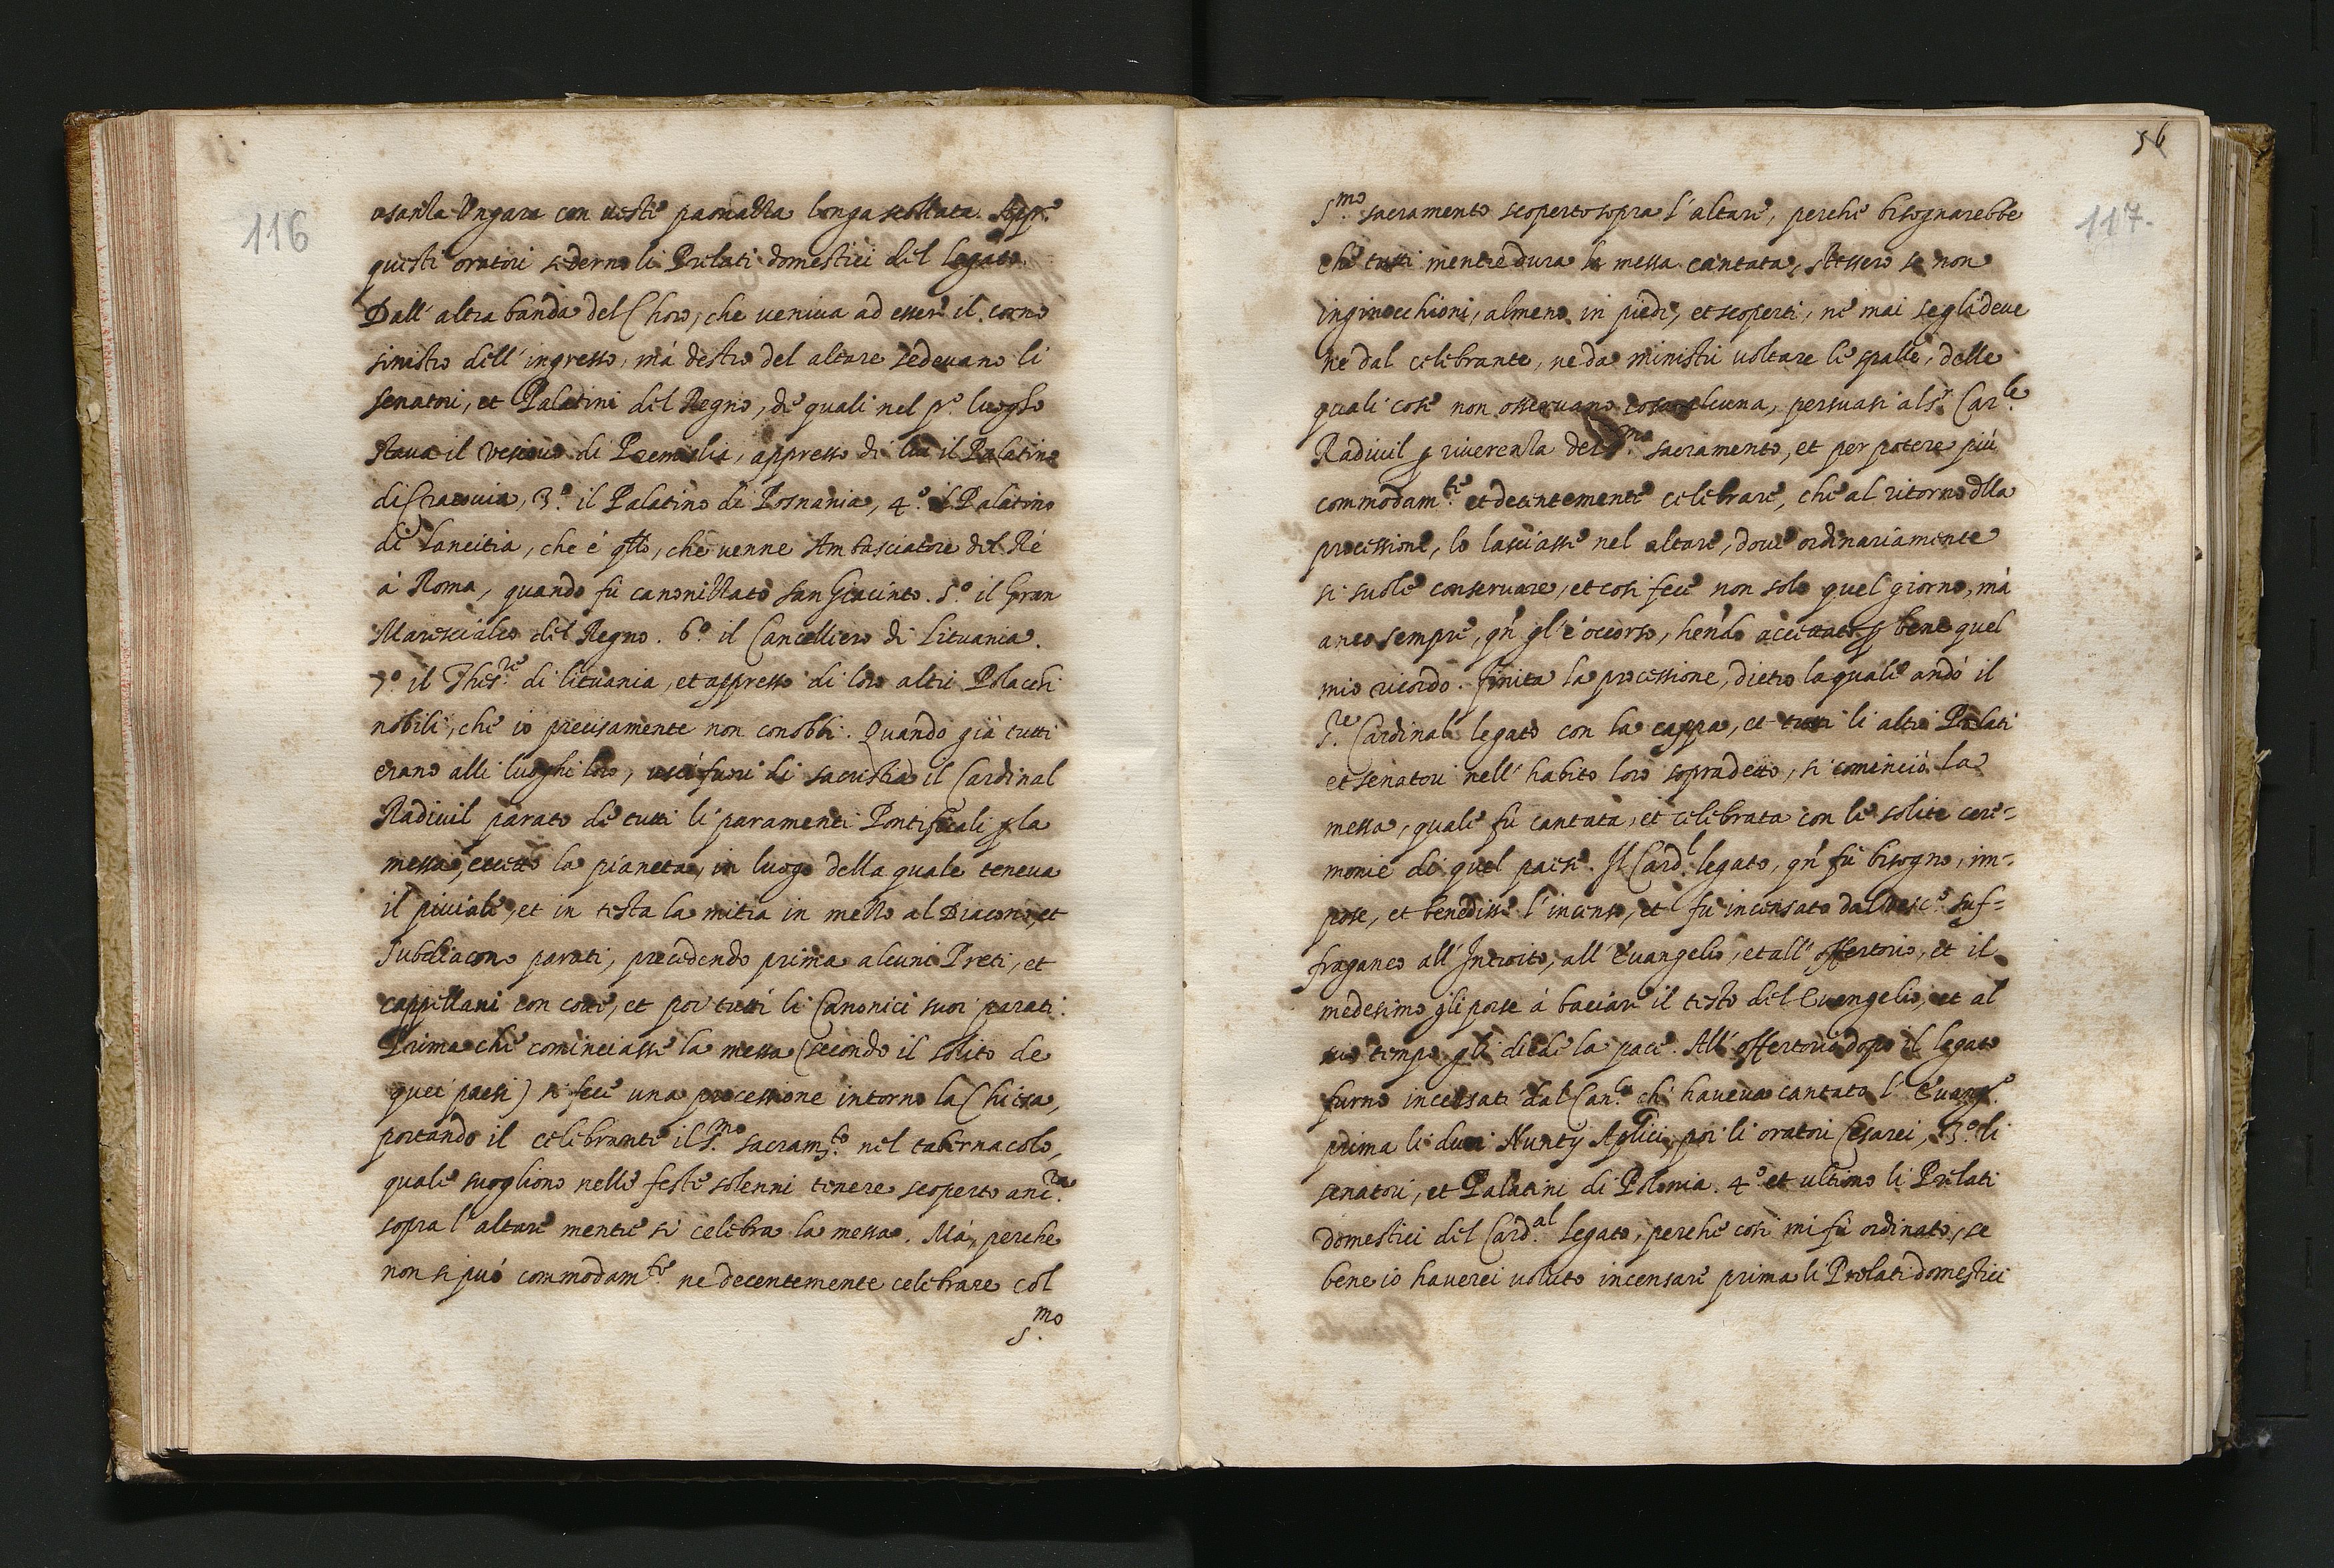 116
usanza Ungara con veste paonazza longa scollata. App.º
questi oratori sederno li Prelati domestici del legato.
Dall' altra banda del Choro, che veniva ad esser il corno
sinistro dell' ingresso, mà destro del altare sedevano li
senatori, et Palatini del Regno, de quali nel p.º luogho
stava il vescovo di Premislia, appresso di lui il Palatino
di Cracovia, 3.º il Palatino di Posnania, 4.º il Palatino
di Lancitia, che è qllo, che venne Ambasciatore del Rè
à Roma, quando fù canonizzato san Giacinto. 5.º il Gran
Marescialco del Regno. 6.º il Cancelliero di Lituania.
7.º il Thes.re di lituania, et appresso di loro altri Polacchi
nobili, che io precisamente non conobbi. Quando già tutti
erano alli luoghi loro, uscì fuori di sacristia il Cardinal
Radivil parato de tutti li paramenti Pontificali p la
messa, eccetto la pianeta, in luogo della quale teneva
il piviale, et in testa la mitra in mezzo al Diacono, et
Subdiacono parati, precedendo prima alcuni Preti, et
cappellani con cotte, et poi tutti li Canonici suoi parati.
Prima che cominciasse la messa (secondo il solito de
quei paesi) si fece una processione intorno la Chiesa,
portando il celebrante il S.mo sacram.to nel tabernacolo,
quale sogliono nelle feste solenni tenere scoperto anc.ra
sopra l' altare mentre si celebra la messa. Mà, perche
non si può commodam.te ne decentemente celebrare col
S.mo
56
117.
S.mo sacramento scoperto sopra l' altare, perche bisognarebbe
che tutti mentre dura la messa cantata, stessero se non
inginocchioni, almeno in piedi, et scoperti, nè mai se gli deve
ne dal celebrante, ne da ministri voltare le spalle, delle
quali cose non osservano cosa alcuna, persuasi al S.r Car.le
Radivil p riverenza del S.mo sacramento, et per potere più
commodam.te et decentemente celebrare, che al ritorno dlla
processione, lo lasciasse nel altare, dove ordinariamente
si suole conservare, et così fece non solo quel giorno, mà
anco sempre, qn gl' è occorso, hendo accettato p bene quel
mio ricordo. Finita la processione, dietro la quale andò il
S.re Cardinal legato con la cappa, et tutti li altri Prelati
et senatori nell' habito loro sopradetto, si cominciò la
messa, quale fù cantata, et celebrata con le solite cere=
monie di quel paese. Il Card.l legato, qn fù bisogno, im=
pose, et benedisse l' incenso, et fu incensato dal vesc.º suf=
fraganeo all' Introito, all' Evangelio, et all' offertorio, et il
medesimo gli porse à baciare il testo del Evangelio, et al
suo tempo gli diede la pace. All' offertorio dopo il legato
furno incensati dal Can.co ch' haveva cantato l' Evang.º
prima li duoi Nuntij Aplici, poi li oratori Cesarei, 3.º li
senatori, et Palatini di Polonia. 4.º et ultimo li Prelati
domestici del Card.al legato, perche così mi fù ordinato, se
bene io haverei voluto incensare prima li Prelati domestici